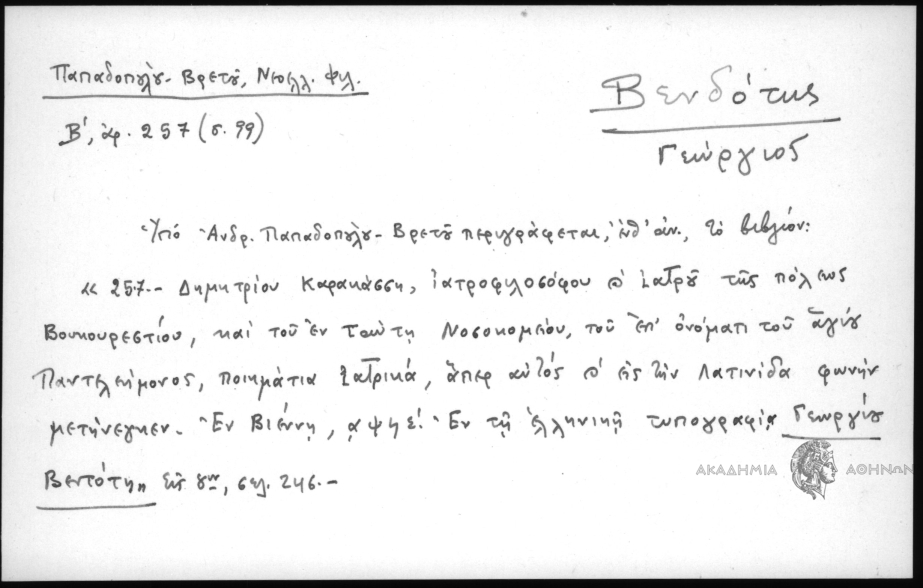 Παπαδοπούλου-Βρετοῦ, Νεοελλ. Φιλ.
Β΄, ἀρ. 257 (σ. 99)
Βενδότης
Γεώργιος
Ὑπό Ἀνδρ. Παπαδοπούλου-Βρετοῦ περιγράφεται, ἔνθ' ἀν., τό βιβλίον:
« 257.- Δημητρίου Καρακάσση, ἰατροφιλοσόφου καὶ ἰατροῦ τῆς πόλεως
Βουκουρεστίου, καί τοῦ ἐν ταύτῃ Νοσοκομείου, τοῦ ἐπ' ὀνόματι τοῦ ἁγίου
Παντελεήμονος, ποιημάτια ἰατρικά, ἅπερ αὐτός καὶ εἰς τήν Λατινίδα φωνήν
μετήνεγκεν. Ἐν Βιέννῃ, ͵αψϟε΄. Ἐν τῇ ἑλληνικῇ τυπογραφίᾳ Γεωργίου
Βεντότη» εἰς 8ον, σελ. 246.-
ΑΚΑΔΗΜΙΑ ΑΘΗΝΩΝ